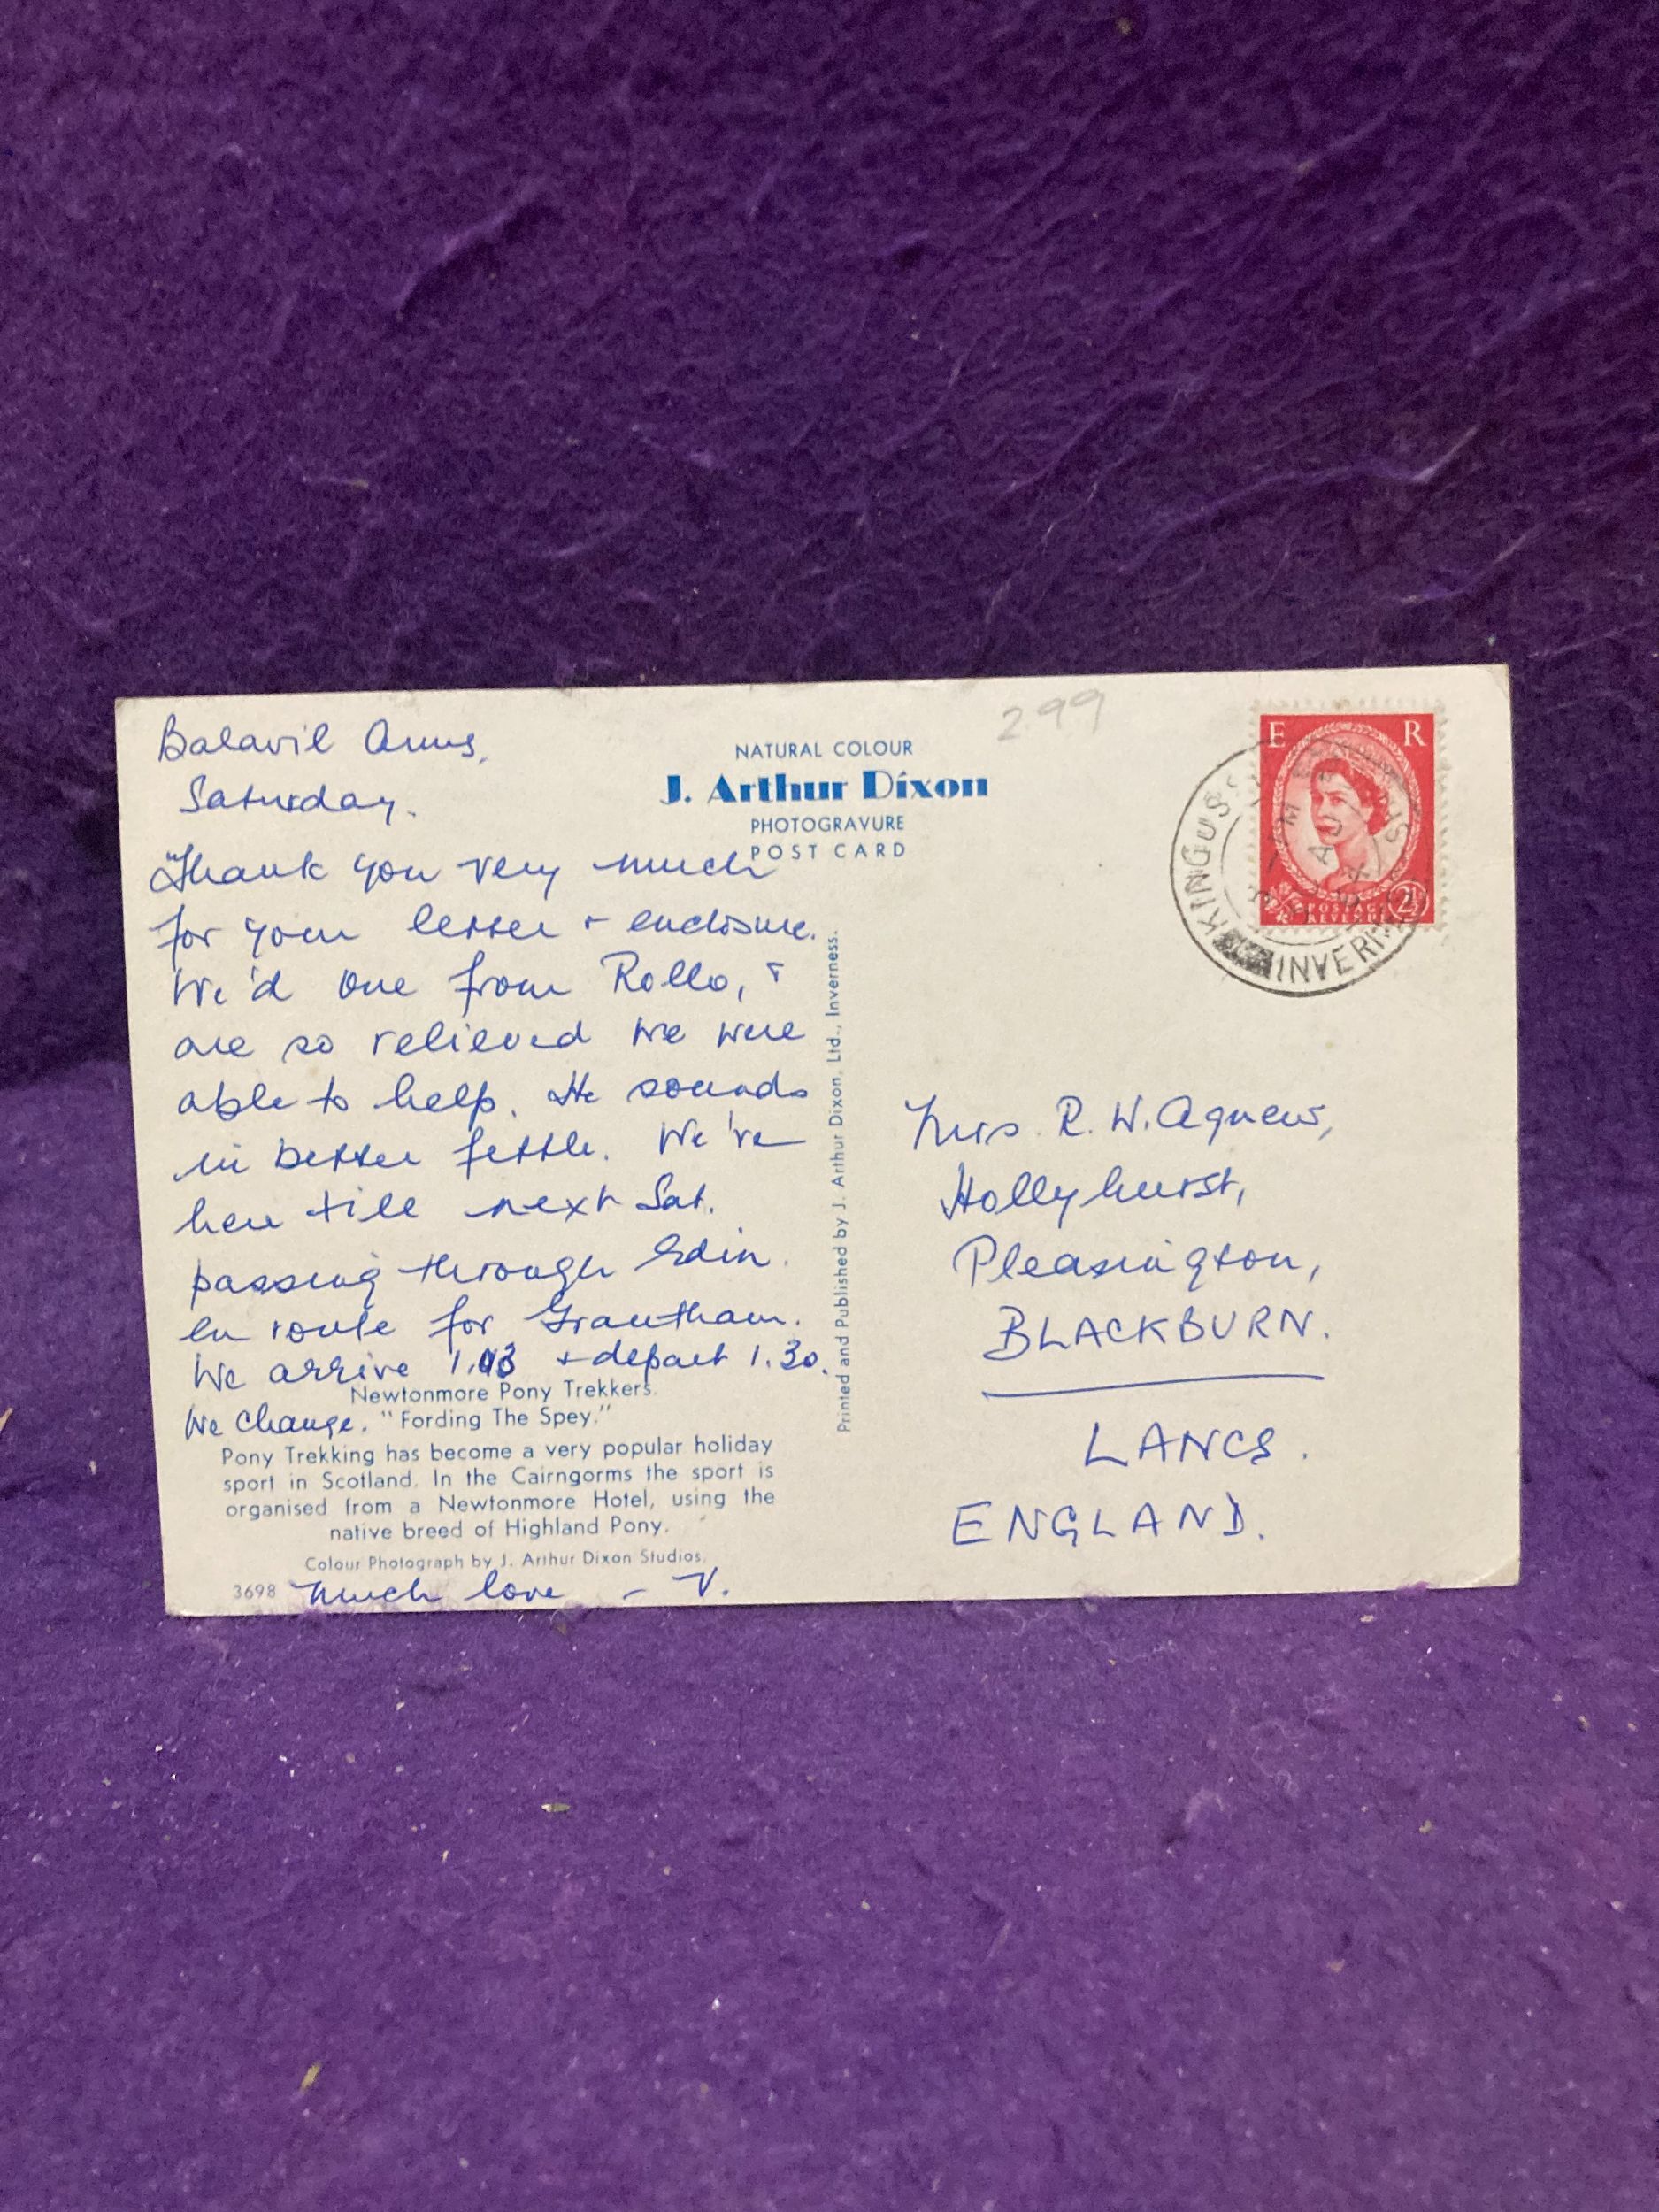 Balavil Arms,
Saturday.
Thank you very much
for your letter + enclosure.
We'd one from Rollo, +
are so relieved we were
able to help. He sounds
in better fettle. We're
here till next Sat.
passing through Edin.
en route for Grantham.
We arrive 1.03 + depart 1.30.
We change.
much love - V.
NATURAL COLOUR
J. Arthur Dixon
PHOTOGRAVURE
POST CARD
Newtonmore Pony Trekkers.
"Fording The Spey."
Pony Trekking has become a very popular holiday
sport in Scotland. In the Cairngorms the sport is
organised from a Newtonmore Hotel, using the
native breed of Highland Pony.
Colour Photograph by J. Arthur Dixon Studios.
3698
Printed and Published by J. Arthur Dixon, Ltd., Inverness.
299
E R
POSTAGE
REVENUE
2½
KINGUSS
INVERN
AU
Mrs. R. W. Agnew,
Hollyhurst,
Pleasington,
BLACKBURN.
LANCS.
ENGLAND.